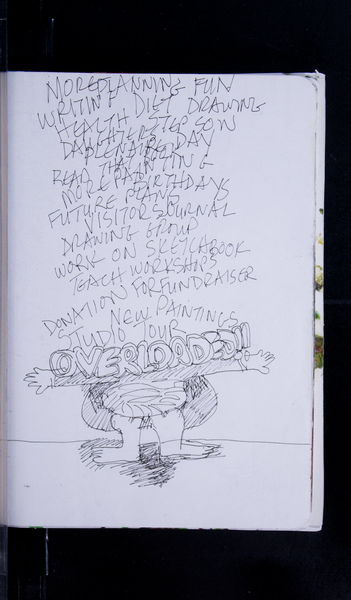 MORE PLANNING FUN
WRITING DIET DRAWING
HEALTH STEP SON
DAUGHTER
PLEINAIRE DAY
READ THAT
MORE PAINTING
BIRTHDAYS
FUTURE PLANS
VISITORS JOURNAL
DRAWING GROUP
WORK ON SKETCHBOOK
TEACH WORKSHOPS
DONATION FOR FUNDRAISER
NEW PAINTINGS
STUDIO TOUR
OVERLOADED!!